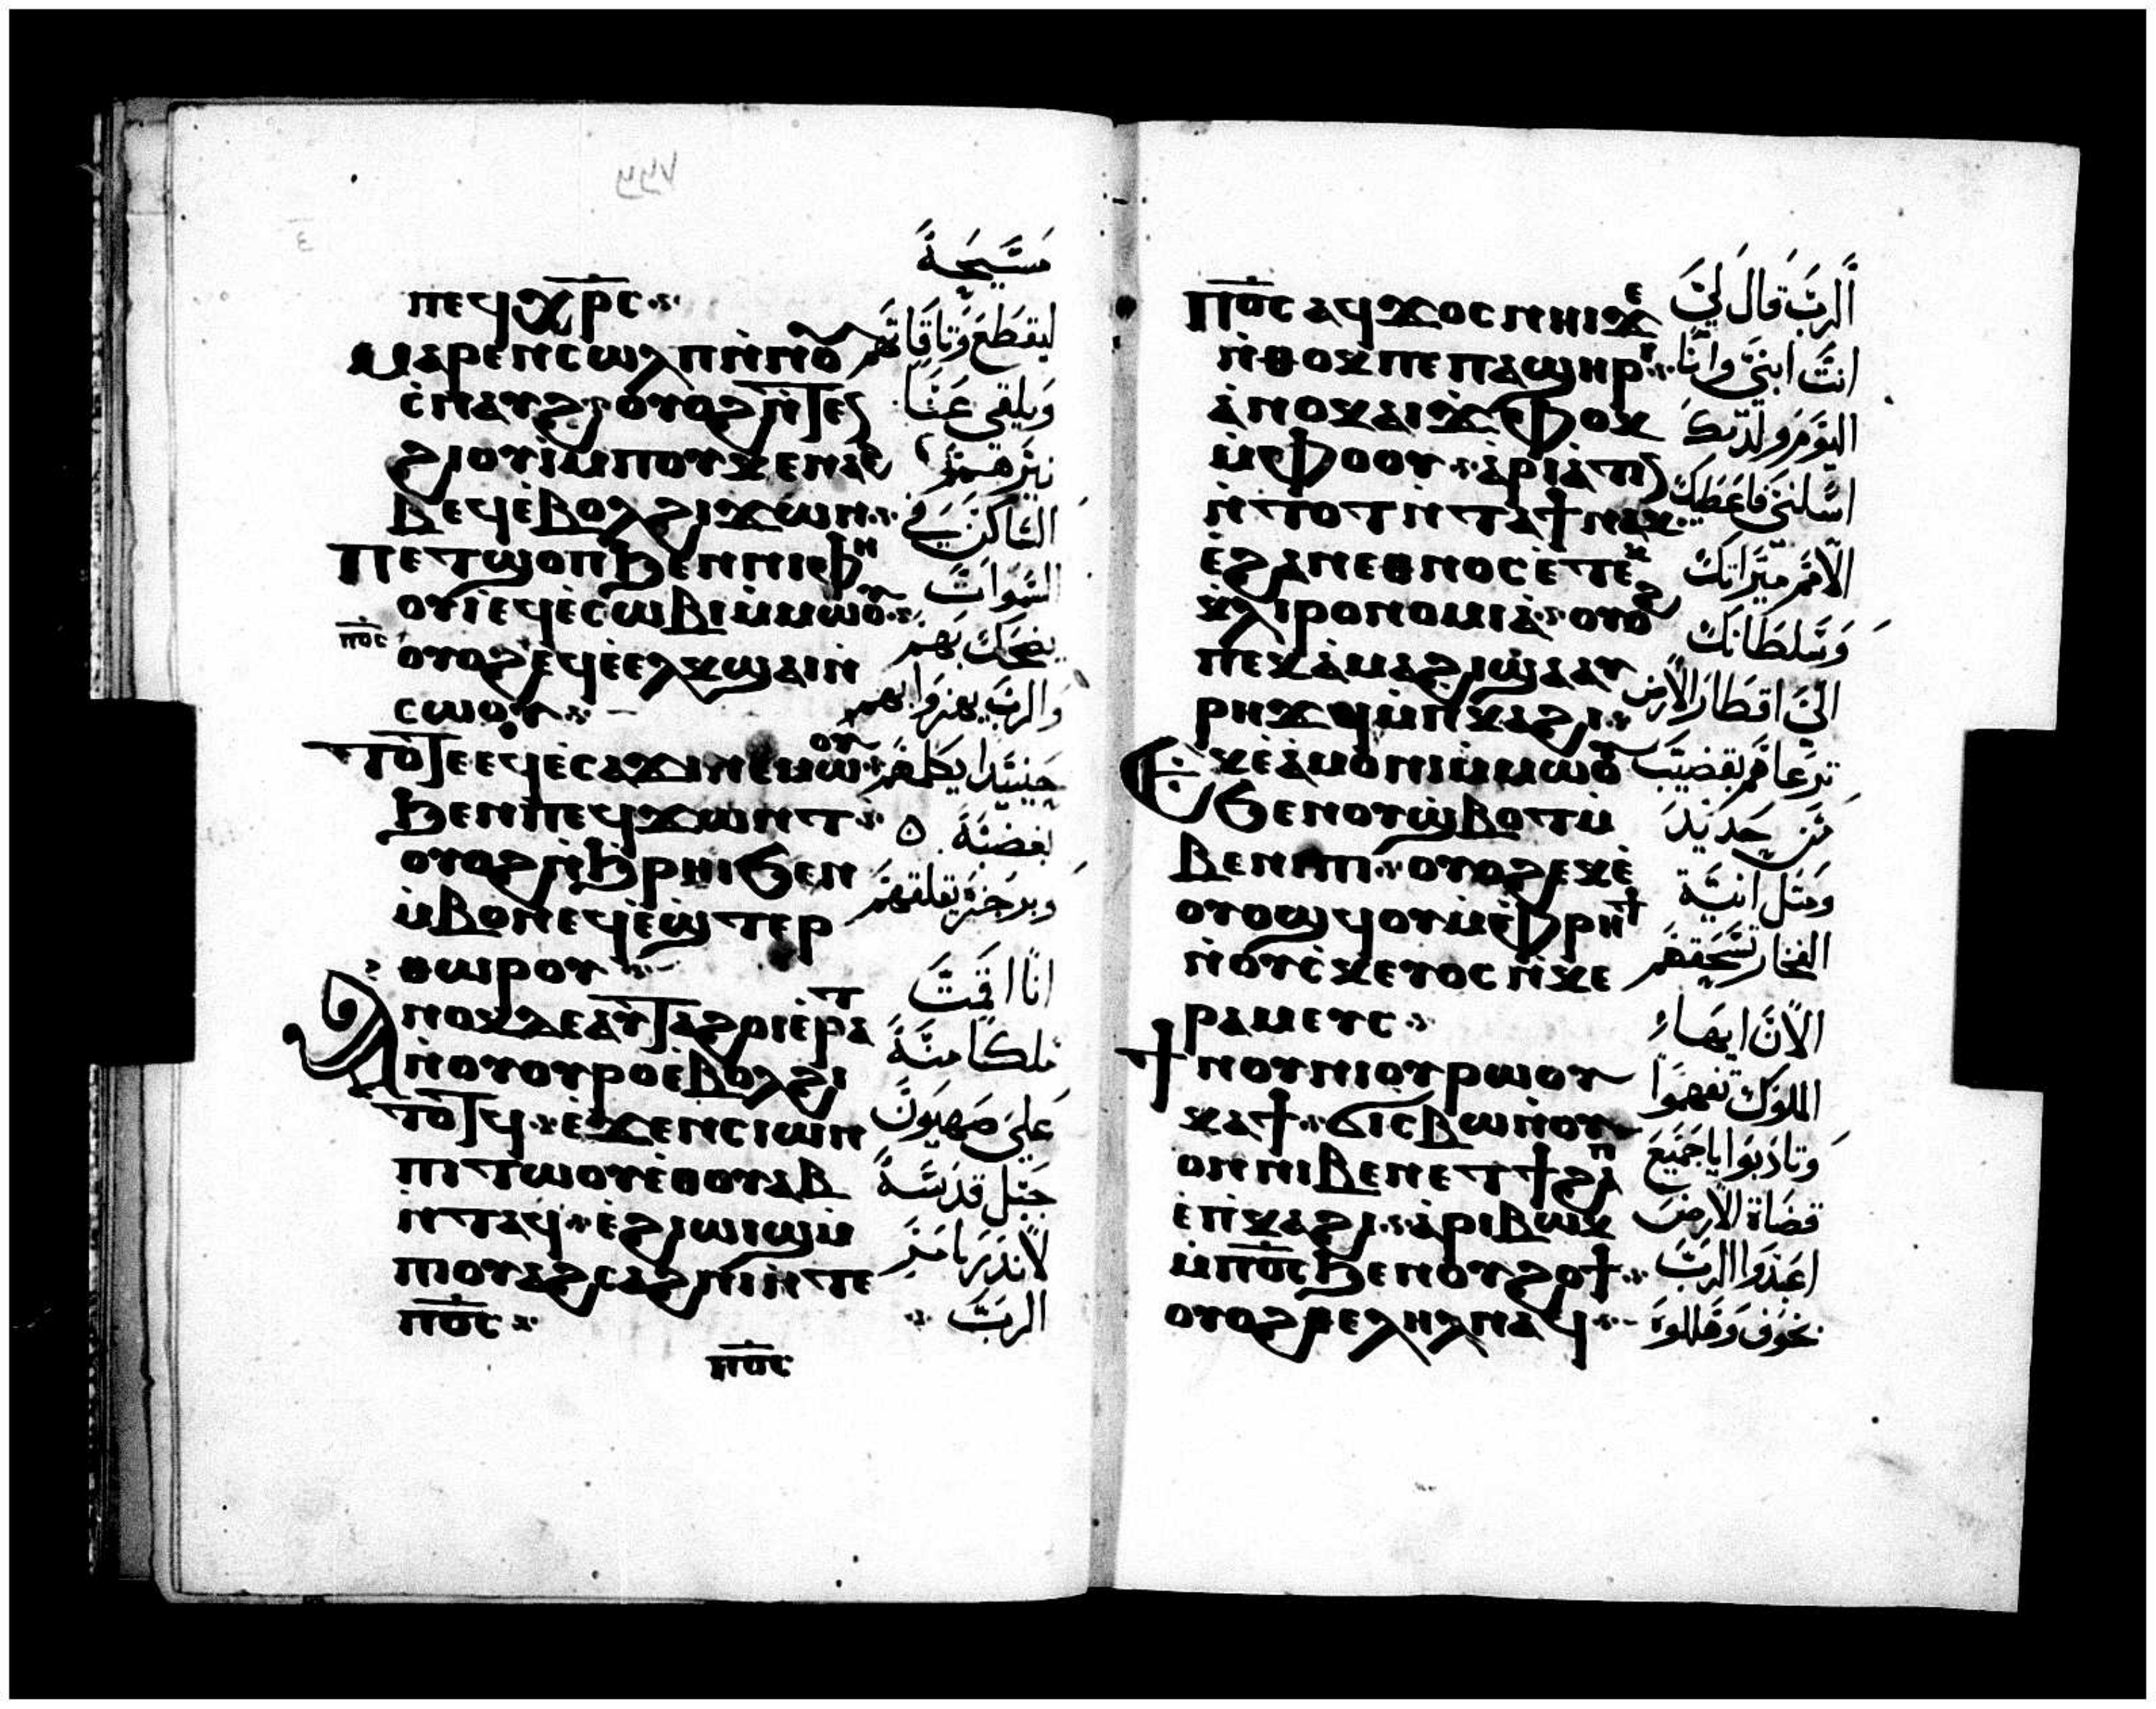 ⲡⲉϥⲭⲣ̅ⲥ̅
ⲙⲁⲣⲉⲛⲥⲱⲗⲡ ⲛ̀ⲛⲟⲩ
ⲥ̀ⲛⲁⲩϩ ⲟⲩⲟϩ ⲛ̀ⲧⲉⲛ
ϩⲓⲟⲩⲓ̀ ⲙ̀ⲡⲟⲩⲕⲉⲛⲁϩ
ⲃⲉϥ ⲉ̀ⲃⲟⲗ ϩⲓϫⲱⲛ
ⲡⲉⲧϣⲟⲡ ϧⲉⲛ ⲛⲓⲫⲏ
ⲟⲩⲓ̀ ⲉϥⲉ̀ⲥⲱⲃⲓ ⲙ̀ⲙⲱⲟⲩ
ⲟⲩⲟϩ ⲉϥⲉ̀ⲉⲗⲕϣⲁⲓ ⲛ̀
ⲡⲟ̅ⲥ̅
ⲥⲱⲟⲩ
ⲧⲟⲧⲉ ⲉϥⲉ̀ⲥⲁϫⲓ ⲛⲉⲙⲱⲟⲩ
ϧⲉⲛ ⲡⲉϥϫⲱⲛⲧ
ⲟⲩⲟϩ ⲛ̀ϧⲣⲏⲓ ϧⲉⲛ
ⲙ̀ⲃⲟⲛ ⲉϥⲉ̀ϣⲧⲉⲣ
ⲑⲱⲣⲟⲩ
ⲁⲛⲟⲕ ⲇⲉ ⲁⲩⲧⲁϩⲟⲓ ⲉ̀ⲣⲁⲧ
ⲛ̀ⲟⲩⲟⲩⲣⲟ ⲉ̀ⲃⲟⲗ ϩⲓ
ⲧⲟⲧϥ ⲉ̀ϫⲉⲛ ⲥⲓⲱⲛ
ⲡⲓⲧⲱⲟⲩ ⲉ̀ⲑⲟⲩⲁⲃ
ⲛ̀ⲧⲁϥ ⲉ̀ϩⲓⲱⲓϣ ⲙ̀
ⲡⲓⲟⲩⲁϩⲥⲁϩⲛⲓ ⲛ̀ⲧⲉ
ⲡⲟ̅ⲥ̅
ⲡⲟ̅ⲥ̅
مسيحة
ليقطع وثاقاتهم
ويلقى عنا
نيرهم
الساكن في
السموات
يضحك بهم
والرب يهزوا بهم
حينيذا يكلمهم
بغضبة
وبرجزة يقلقهم
انا اقمت
ملكا منة
على صهيون
جبل قدسة
لانذر بامر
الرب
ⲡⲟ̅ⲥ̅ ⲁϥϫⲟⲥ ⲛⲏⲓ ϫⲉ
ⲛ̀ⲑⲟⲕ ⲡⲉ ⲡⲁϣⲏⲣⲓ
ⲁ̀ⲛⲟⲕ ⲁⲓϫⲫⲟⲕ
ⲙ̀ⲫⲟⲟⲩ ⲁ̀ⲣⲓⲁ̀ⲧⲓⲛ
ⲛ̀ⲧⲟⲧ ⲛ̀ⲧⲁϯ ⲛⲁⲕ
ⲉ̀ϩⲁⲛⲉⲑⲛⲟⲥ ⲉ̀ⲧⲉⲕ
ⲕⲗⲓⲣⲟⲛⲟⲙⲓⲁ̀ ⲟⲩⲟϩ
ⲡⲉⲕⲁ̀ⲙⲁϩⲓ ϣⲁ ⲁⲩ
ⲣⲏϫϥ ⲙ̀ⲡⲕⲁϩⲓ
ⲉⲕⲉ̀ⲁ̀ⲙⲟⲛⲓ ⲙ̀ⲙⲱⲟⲩ
ϧⲉⲛ ⲟⲩϣ̀ⲃⲟⲧ ⲙ̀
ⲃⲉⲛⲓⲡⲓ ⲟⲩⲟϩ ⲉⲕⲉ̀
ⲟⲩⲟϣϥⲟⲩ ⲙ̀ⲫⲣⲏϯ
ⲛ̀ⲟⲩⲥ̀ⲕⲉⲩⲟⲥ ⲛ̀ⲕⲉ
ⲣⲁⲙⲉⲩⲥ
ϯⲛⲟⲩ ⲛⲓⲟⲩⲣⲱⲟⲩ
ⲕⲁϯ ϭⲓⲥⲃⲱ ⲛ̀ⲟⲩ
ⲟⲛ ⲛⲓⲃⲉⲛ ⲉⲧϯϩⲁⲡ
ⲉ̀ⲡⲕⲁϩⲓ ⲁ̀ⲣⲓⲃⲱⲕ
ⲙ̀ⲡⲟ̅ⲥ̅ ϧⲉⲛ ⲟⲩϩⲟϯ
ⲟⲩⲟϩ ⲑⲉⲗⲏⲗ ⲛⲁϥ
الرب قال لي
انت ابني وانا
اليوم ولدتك
اسلني فاعطيك
الامم ميراتك
وسلطانك
الى اقطار الارض
ترعاهم بقضيب
من حديد
ومتل انية
الفخار تسحقهم
الان ايها
الملوك تفهموا
وتادبوا يا جميع
قضاة الارض
اعبدوا الرب
بخوف وهللوا